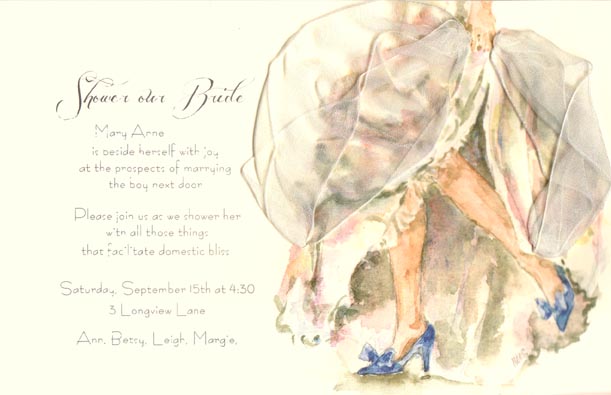 Shower our Bride
Mary Anne
is beside herself with joy
at the prospects of marrying
the boy next door
Please join us as we shower her
with all those things
that facilitate domestic bliss
Saturday, September 15th at 4:30
3 Longview Lane
Ann, Betsy, Leigh, Margie,